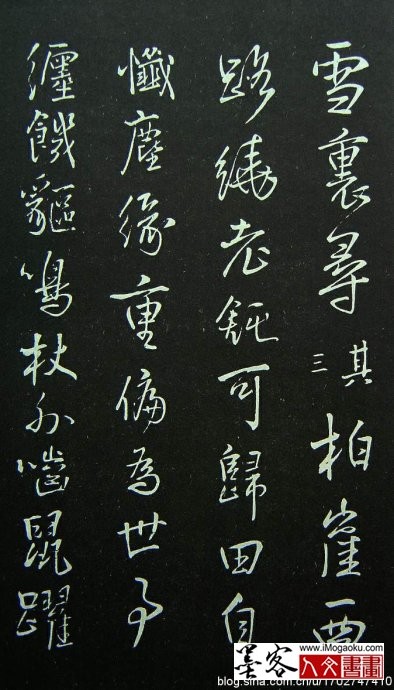 雪裏尋
其三
柏崖西
路繞老鈍可歸田自
懺塵緣重偏為世事
纏餓貙鳴杖外嚙鼠躍
墨客
www.iMogaoku.com
人文書畫
blog.sina.com.cn/u/1702747410